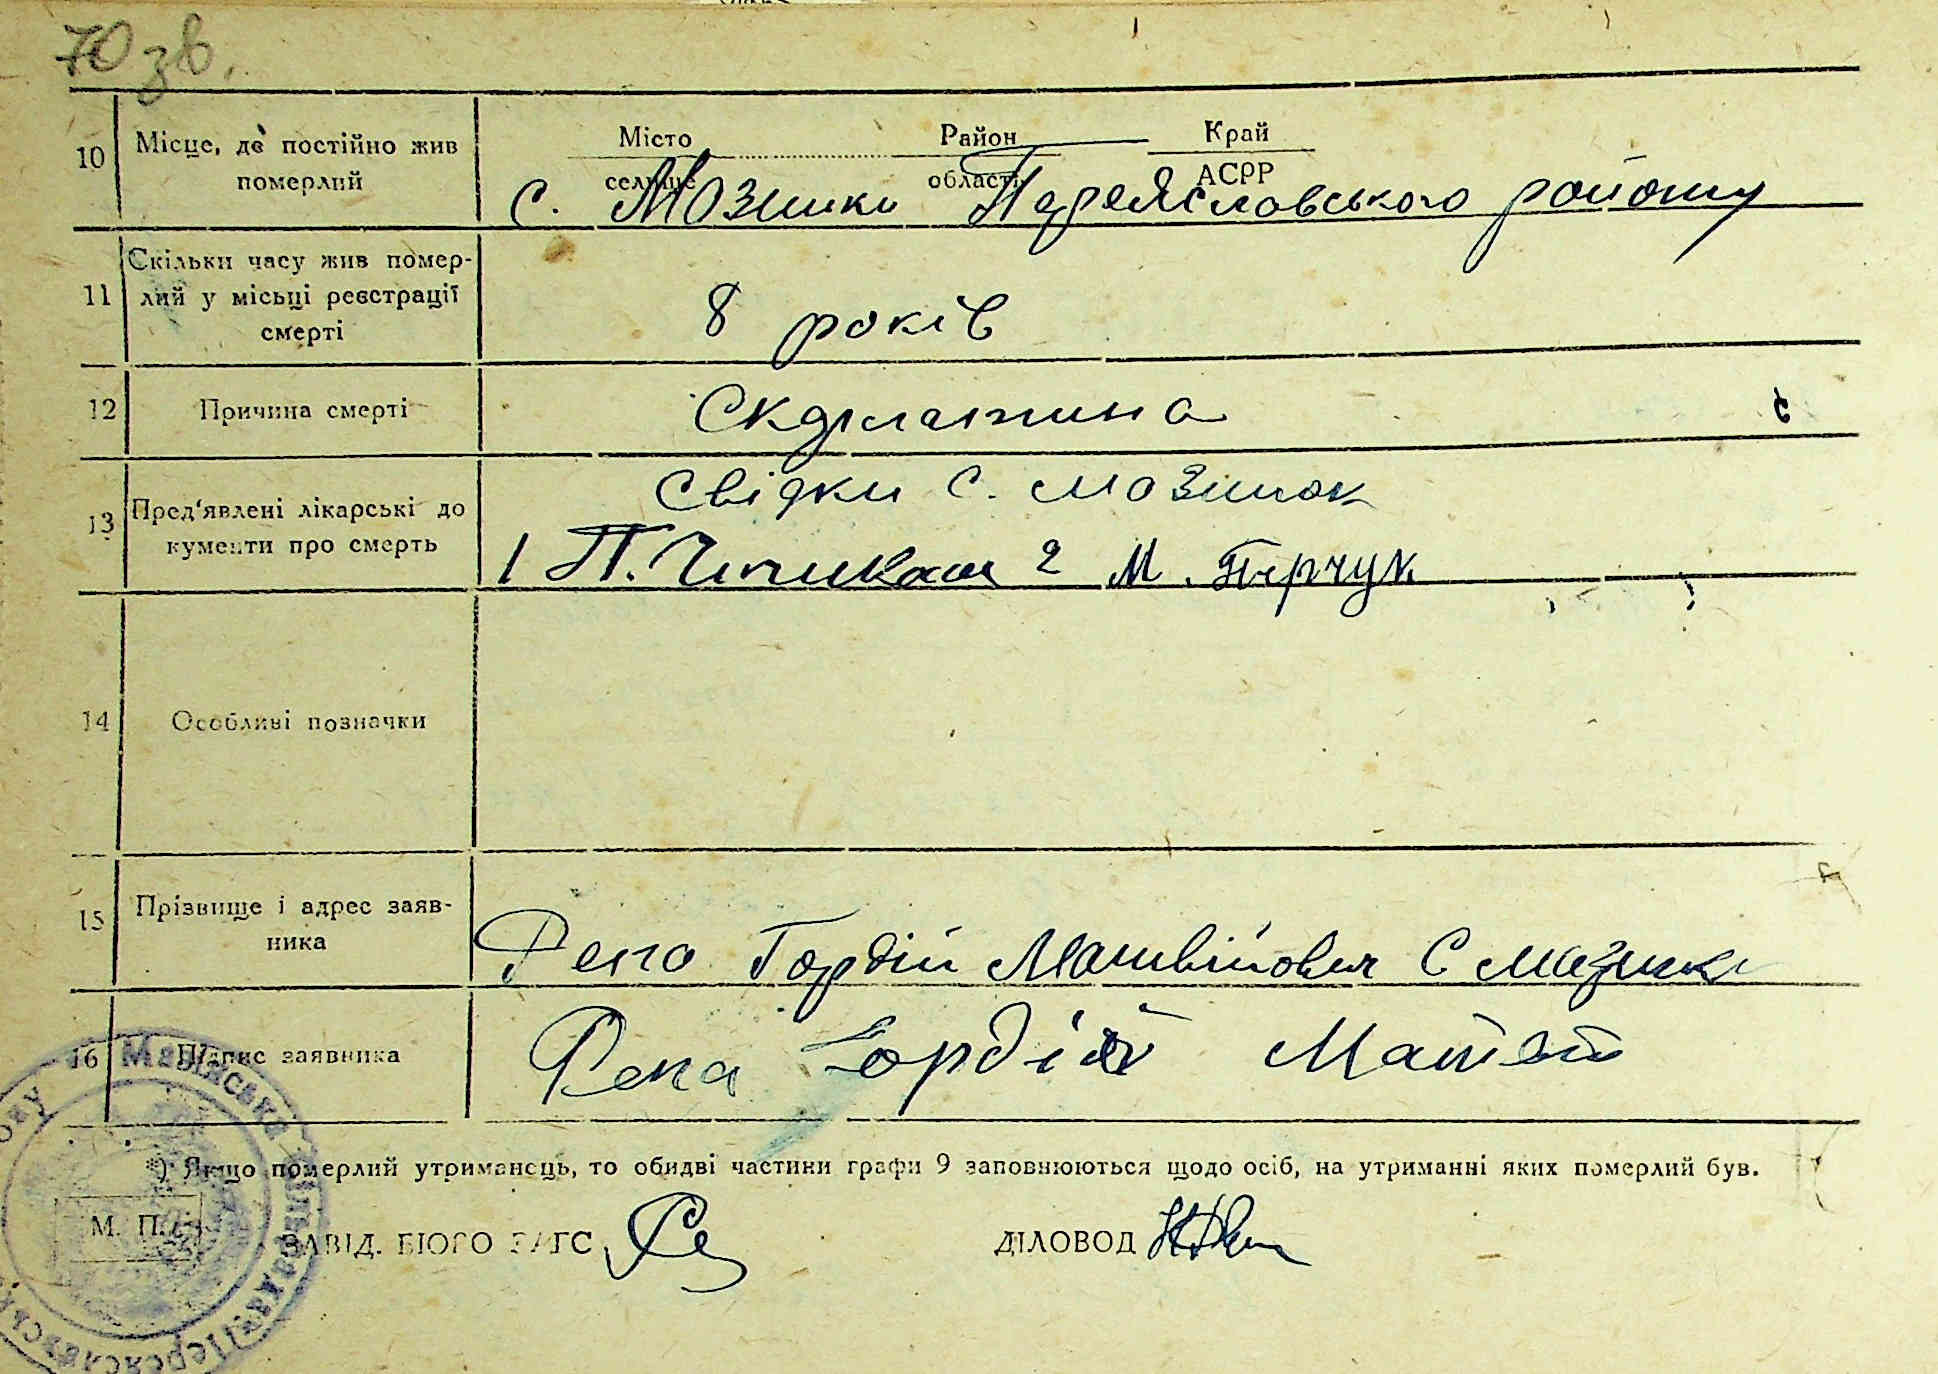 70 зв.
10 Місце, де постійно жив померлий
Місто Район Край
селище область АСРР
с. Мозинки Переяславського району
11 Скільки часу жив помер-
лий у місьці реєстрації
смерті
8 років
12 Причина смерті
Скарлатина
13 Пред'явлені лікарські до
кументи про смерть
Свідки с. Мозинок
1 П. 2 М.
14 Особливі позначки
15 Прізвище і адрес заяв-
ника
Репа Гордій Матвійович с Мазинки
16 Підпис заявника
Репа Гордій
*) Якщо померлий утриманець, то обидві частини графи 9 заповнюються щодо осіб, на утриманні яких померлий був.
М. П.
ЗАВІД. БЮРО ЗАГС
ДІЛОВОД